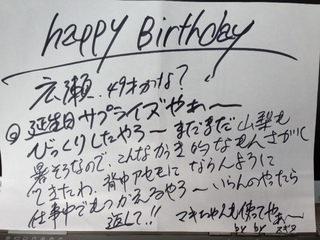 happy Birthday
広瀬、49才かな?
◎誕生日サプライズやぁ〜
びっくりしたやろ〜まだまだ山梨も
暑そうなので、こんなかっき的なもんさがし
できたわ、背中アセモにならんように
仕事中でもつかえるやろ〜いらんのやったら
返して!!
マキちゃんも使ってやぁ〜
by by